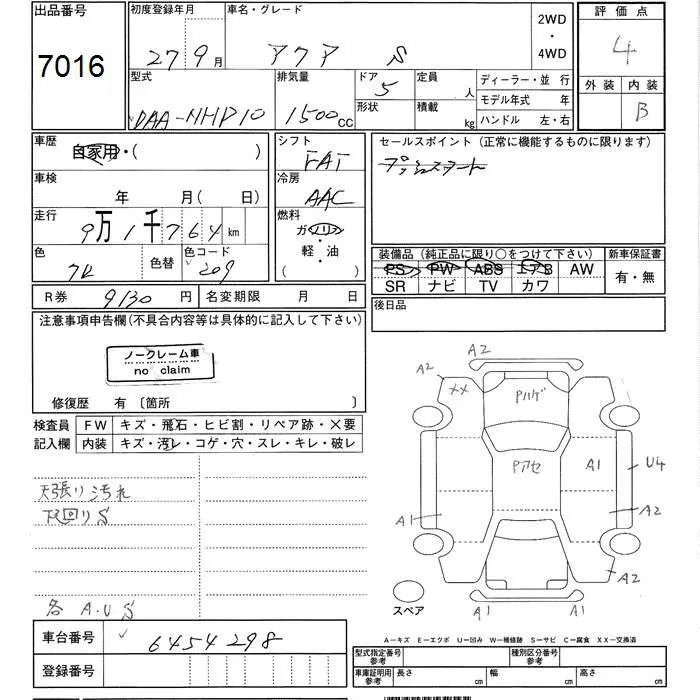 出品番号 初度登録年月 車名・グレード 2WD・4WD 評価点
7016 27 9月 アクア S 4
型式 排気量 ドア 定員 ディーラー・並行 外装 内装
DAA-NHP10 1500cc 5 人 モデル年式 年 B
形状 積載 kg ハンドル 左・右
車歴 シフト セールスポイント (正常に機能するものに限ります)
自家用・( ) FAT プッシュスタート
車検 冷房
年 月(日) AAC
走行 燃料
9万1千764km ガソリン
軽・油
( )
色 色替 色コード 装備品 (純正品に限り○をつけて下さい) 新車保証書
クロ 209 PS PW ABS エアB AW 有・無
SR ナビ TV カワ
R券 9130円 名変期限 月 日 後日品
注意事項申告欄(不具合内容等は具体的に記入して下さい)
ノークレーム車
no claim
修復歴 有 〔箇所 〕
検査員 FW キズ・飛石・ヒビ割・リペア跡・×要
記入欄 内装 キズ・汚レ・コゲ・穴・スレ・キレ・破レ
天張り汚れ
下回りS
各 A.U S
A2
A2
XX
Pハゲ
Pアセ
A1
U4
A1
A2
A2
スペア
A1
A1
車台番号 6454298
A-キズ E-エクボ U-凹み W-補修跡 S-サビ C-腐食 XX-交換済
登録番号
型式指定番号 参考 種別区分番号 参考
車庫証明用 参考 長さ cm 幅 cm 高さ cm